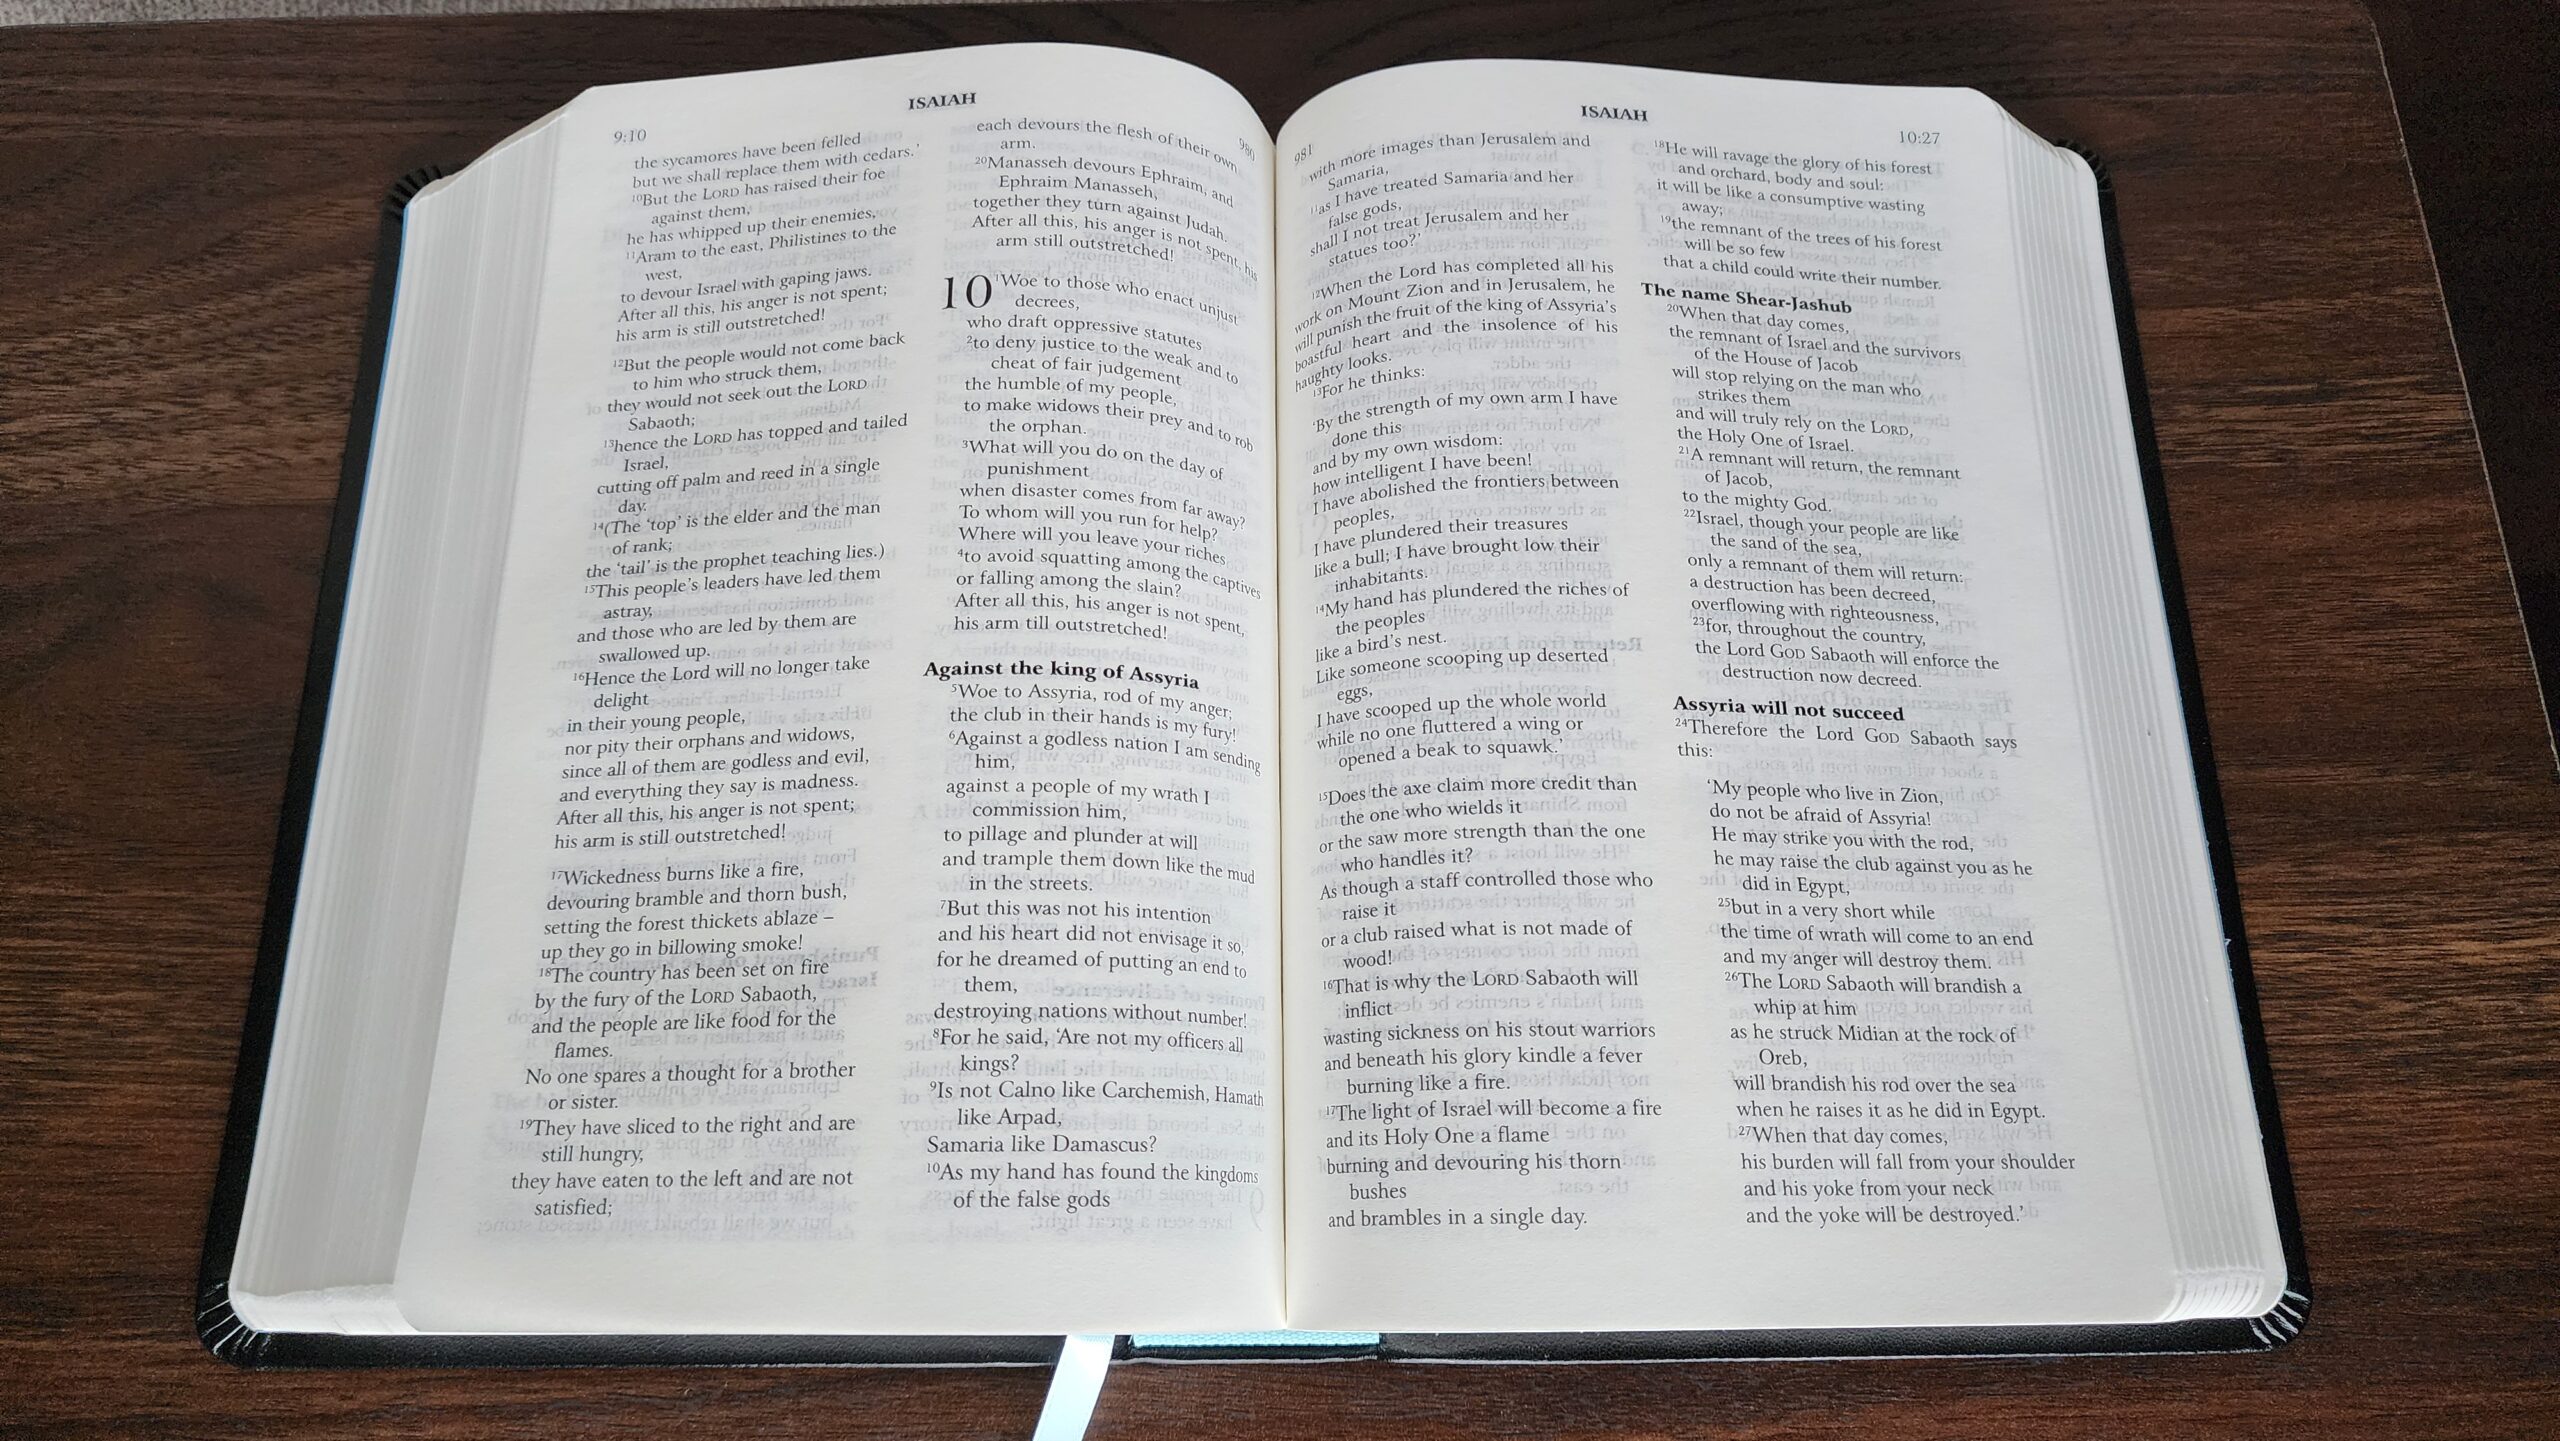 ISAIAH
9:10
980
the sycamores have been felled
but we shall replace them with cedars.'
10But the LORD has raised their foe
against them,
he has whipped up their enemies,
11Aram to the east, Philistines to the
west,
to devour Israel with gaping jaws.
After all this, his anger is not spent;
his arm is still outstretched!
12But the people would not come back
to him who struck them,
they would not seek out the LORD
Sabaoth;
13hence the LORD has topped and tailed
Israel,
cutting off palm and reed in a single
day.
14(The 'top' is the elder and the man
of rank;
the 'tail' is the prophet teaching lies.)
15This people's leaders have led them
astray,
and those who are led by them are
swallowed up.
16Hence the Lord will no longer take
delight
in their young people,
nor pity their orphans and widows,
since all of them are godless and evil,
and everything they say is madness.
After all this, his anger is not spent;
his arm is still outstretched!
17Wickedness burns like a fire,
devouring bramble and thorn bush,
setting the forest thickets ablaze –
up they go in billowing smoke!
18The country has been set on fire
by the fury of the LORD Sabaoth,
and the people are like food for the
flames.
No one spares a thought for a brother
or sister.
19They have sliced to the right and are
still hungry,
they have eaten to the left and are not
satisfied;
each devours the flesh of their own
arm.
20Manasseh devours Ephraim, and
Ephraim Manasseh,
together they turn against Judah.
After all this, his anger is not spent, his
arm still outstretched!
10 1Woe to those who enact unjust
decrees,
who draft oppressive statutes
2to deny justice to the weak and to
cheat of fair judgement
the humble of my people,
to make widows their prey and to rob
the orphan.
3What will you do on the day of
punishment
when disaster comes from far away?
To whom will you run for help?
Where will you leave your riches
4to avoid squatting among the captives
or falling among the slain?
After all this, his anger is not spent,
his arm till outstretched!
Against the king of Assyria
5Woe to Assyria, rod of my anger;
the club in their hands is my fury!
6Against a godless nation I am sending
him,
against a people of my wrath I
commission him,
to pillage and plunder at will
and trample them down like the mud
in the streets.
7But this was not his intention
and his heart did not envisage it so,
for he dreamed of putting an end to
them,
destroying nations without number!
8For he said, 'Are not my officers all
kings?
9Is not Calno like Carchemish, Hamath
like Arpad,
Samaria like Damascus?
10As my hand has found the kingdoms
of the false gods
ISAIAH
981
10:27
with more images than Jerusalem and
Samaria,
11as I have treated Samaria and her
false gods,
shall I not treat Jerusalem and her
statues too?'
12When the Lord has completed all his
work on Mount Zion and in Jerusalem, he
will punish the fruit of the king of Assyria's
boastful heart and the insolence of his
haughty looks.
13For he thinks:
'By the strength of my own arm I have
done this
and by my own wisdom:
how intelligent I have been!
I have abolished the frontiers between
peoples,
I have plundered their treasures
like a bull; I have brought low their
inhabitants.
14My hand has plundered the riches of
the peoples
like a bird's nest.
Like someone scooping up deserted
eggs,
I have scooped up the whole world
while no one fluttered a wing or
opened a beak to squawk.'
15Does the axe claim more credit than
the one who wields it
or the saw more strength than the one
who handles it?
As though a staff controlled those who
raise it
or a club raised what is not made of
wood!
16That is why the LORD Sabaoth will
inflict
wasting sickness on his stout warriors
and beneath his glory kindle a fever
burning like a fire.
17The light of Israel will become a fire
and its Holy One a flame
burning and devouring his thorn
bushes
and brambles in a single day.
18He will ravage the glory of his forest
and orchard, body and soul:
it will be like a consumptive wasting
away;
19the remnant of the trees of his forest
will be so few
that a child could write their number.
The name Shear-Jashub
20When that day comes,
the remnant of Israel and the survivors
of the House of Jacob
will stop relying on the man who
strikes them
and will truly rely on the LORD,
the Holy One of Israel.
21A remnant will return, the remnant
of Jacob,
to the mighty God.
22Israel, though your people are like
the sand of the sea,
only a remnant of them will return:
a destruction has been decreed,
overflowing with righteousness,
23for, throughout the country,
the Lord GOD Sabaoth will enforce the
destruction now decreed.
Assyria will not succeed
24Therefore the Lord GOD Sabaoth says
this:
'My people who live in Zion,
do not be afraid of Assyria!
He may strike you with the rod,
he may raise the club against you as he
did in Egypt,
25but in a very short while
the time of wrath will come to an end
and my anger will destroy them.
26The LORD Sabaoth will brandish a
whip at him
as he struck Midian at the rock of
Oreb,
will brandish his rod over the sea
when he raises it as he did in Egypt.
27When that day comes,
his burden will fall from your shoulder
and his yoke from your neck
and the yoke will be destroyed.'